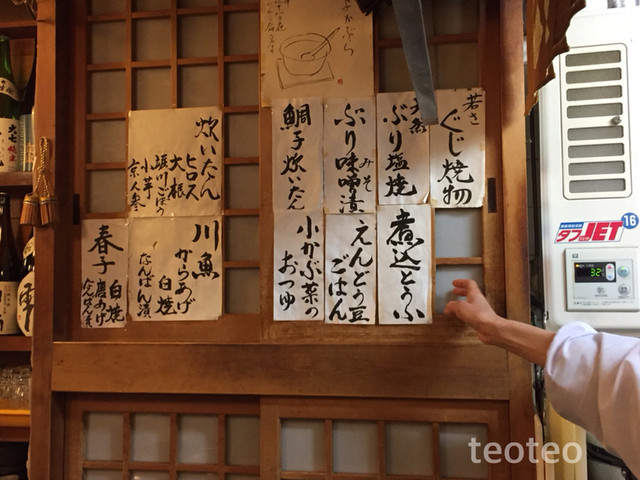 若さ
ぐじ焼物
天然
ぶり塩焼
ぶり味噌漬
みそ
鯛子炊いたん
煮込とうふ
えんどう豆
ごはん
小かぶ菜の
おつゆ
炊いたん
ヒロス
大根
堀川ごぼう
小芋
京人参
川魚
からあげ
白焼
なんばん漬
春子
白焼
なんばん漬
タフJET
16
32
teoteo